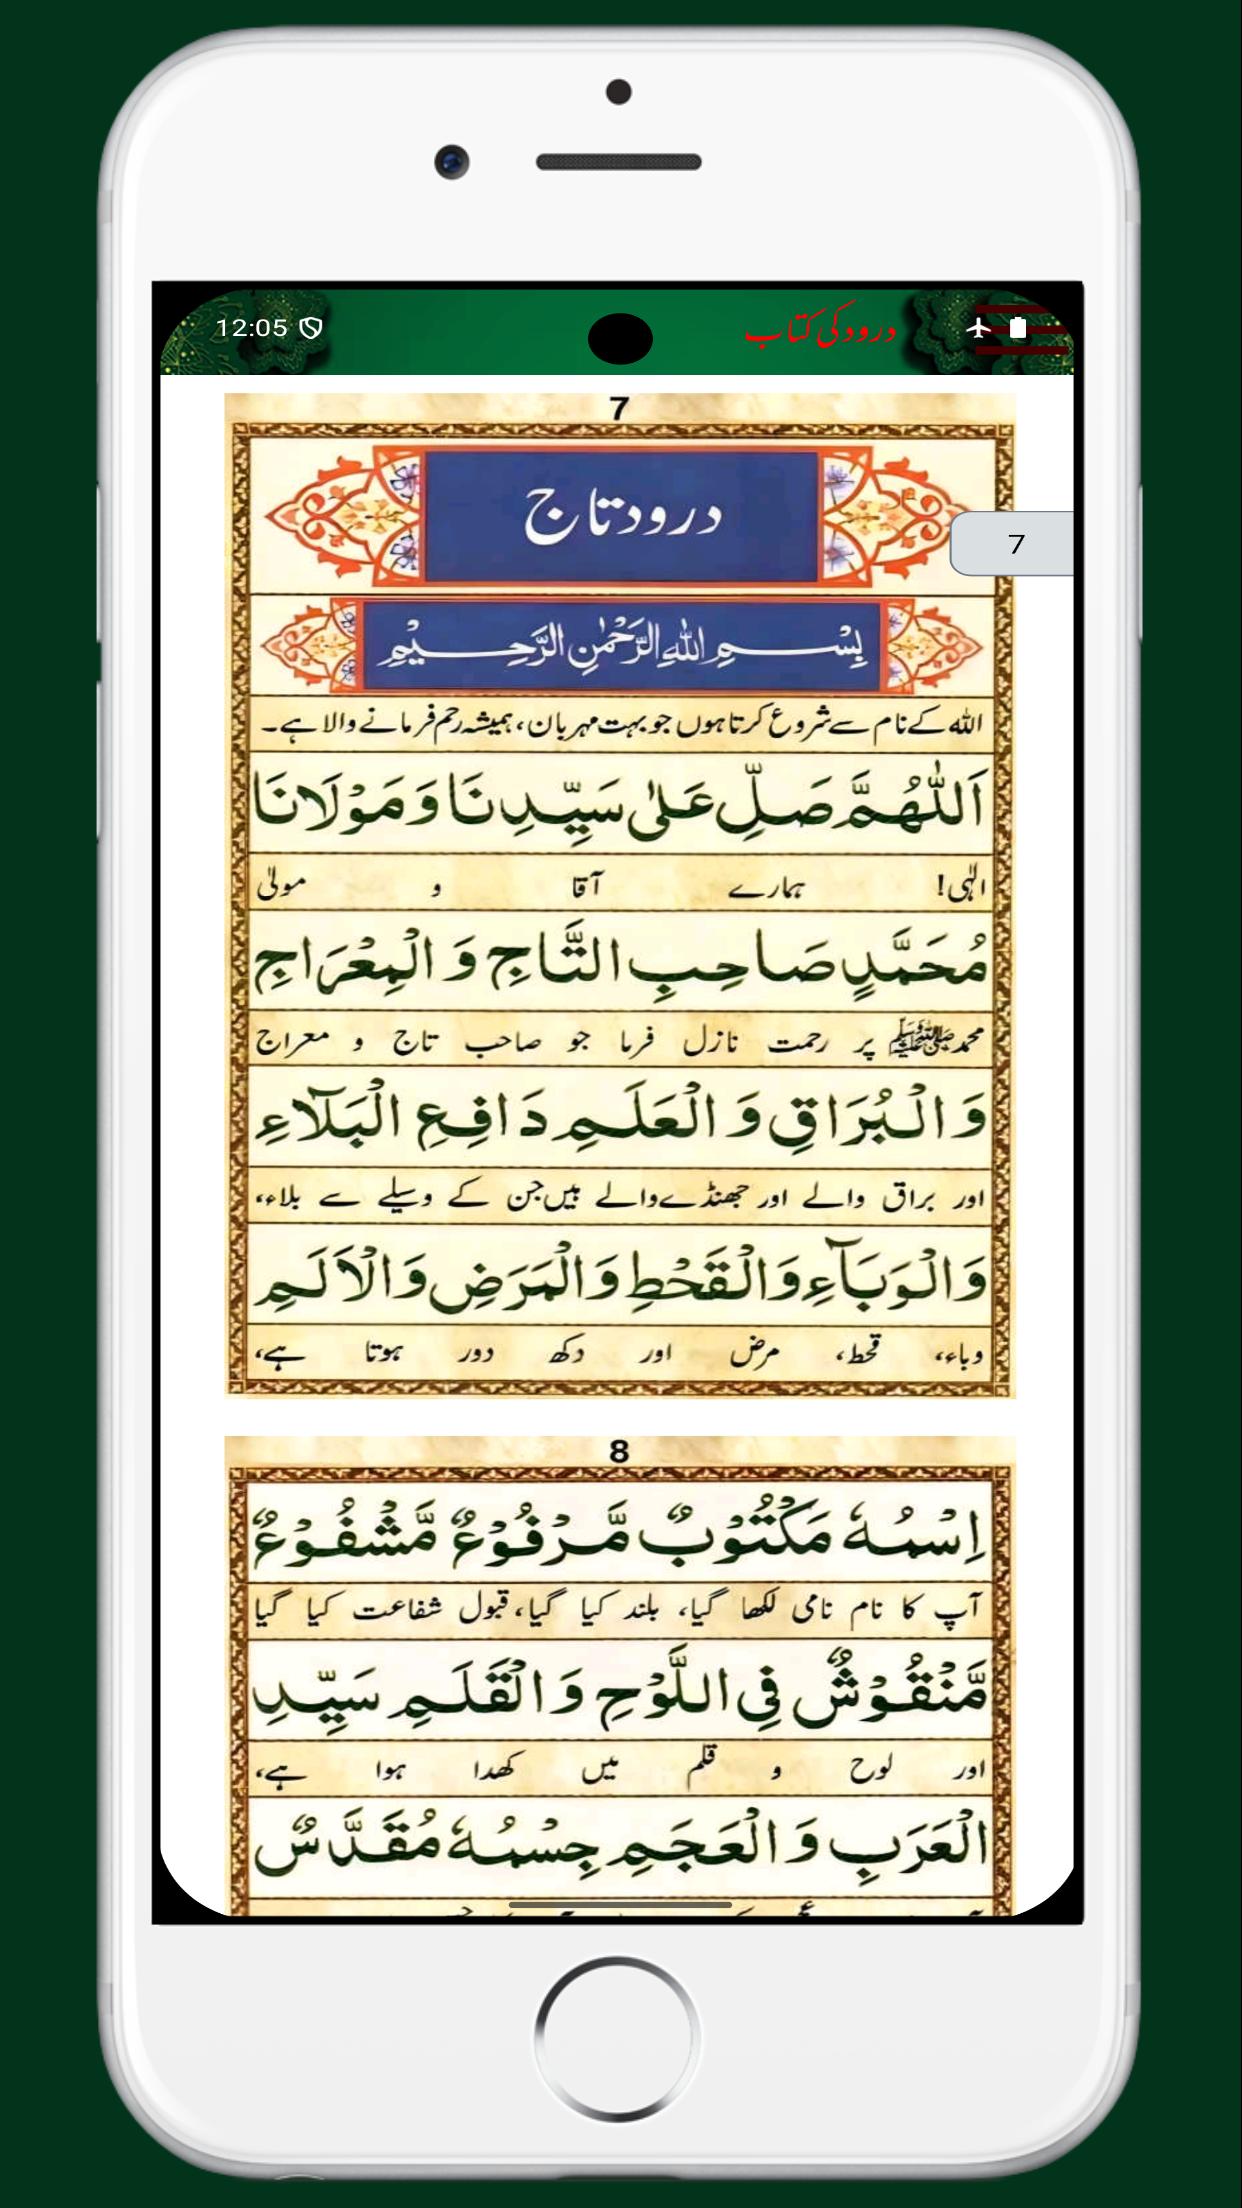 12:05
درود کی کتاب
7
درود تاج
7
بِسْمِ اللّٰهِ الرَّحْمٰنِ الرَّحِيْمِ
اللّٰہ کے نام سے شروع کرتا ہوں جو بہت مہربان، ہمیشہ رحم فرمانے والا ہے۔
اَللّٰهُمَّ صَلِّ عَلٰى سَيِّدِنَا وَ مَوْلَانَا
الٰہی! ہمارے آقا و مولیٰ
مُحَمَّدٍ صَاحِبِ التَّاجِ وَ الْمِعْرَاجِ
محمدﷺ پر رحمت نازل فرما جو صاحب تاج و معراج
وَ الْبُرَاقِ وَ الْعَلَمِ دَافِعِ الْبَلَآءِ
اور براق والے اور جھنڈے والے ہیں جن کے وسیلے سے بلاء،
وَ الْوَبَآءِ وَ الْقَحْطِ وَ الْمَرَضِ وَ الْاَلَمِ
وباء، قحط، مرض اور دکھ دور ہوتا ہے،
8
اِسْمُهٗ مَكْتُوْبٌ مَّرْفُوْعٌ مَّشْفُوْعٌ
آپ کا نام نامی لکھا گیا، بلند کیا گیا، قبول شفاعت کیا گیا
مَّنْقُوْشٌ فِى اللَّوْحِ وَ الْقَلَمِ سَيِّدِ
اور لوح و قلم میں کھدا ہوا ہے،
الْعَرَبِ وَ الْعَجَمِ جِسْمُهٗ مُقَدَّسٌ